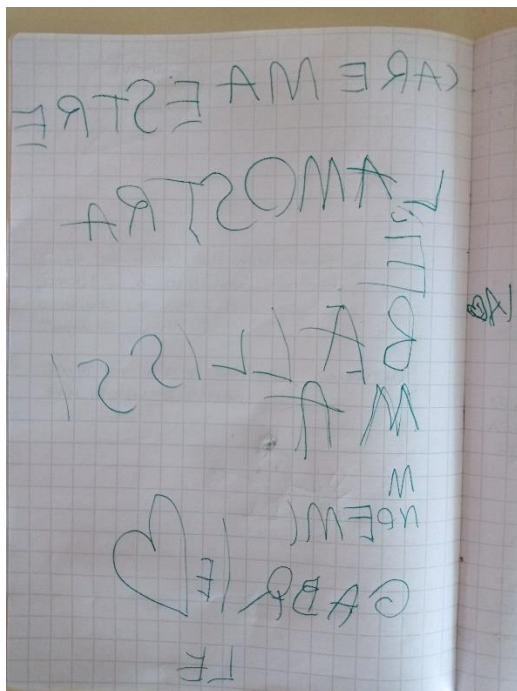 CARE MAESTRE
LA MOSTRA
È
BALLISSI
MA
M
NOEMI
GABRIE
LE